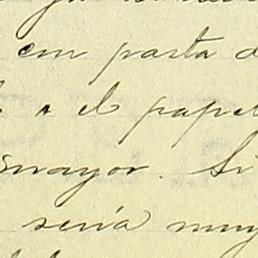 con pasta d
a el papel
mayor. Si
sería muy